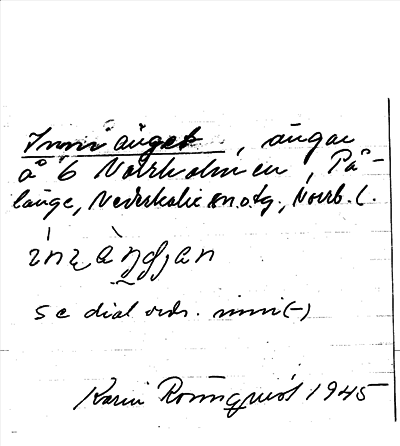 Inniänget, ängar
å 6 Norrholmen, På-
länge, Nederkalix sn o. tg., Norrb. l.
se dial. ordr. inni(-)
Karin Rönnquist 1945